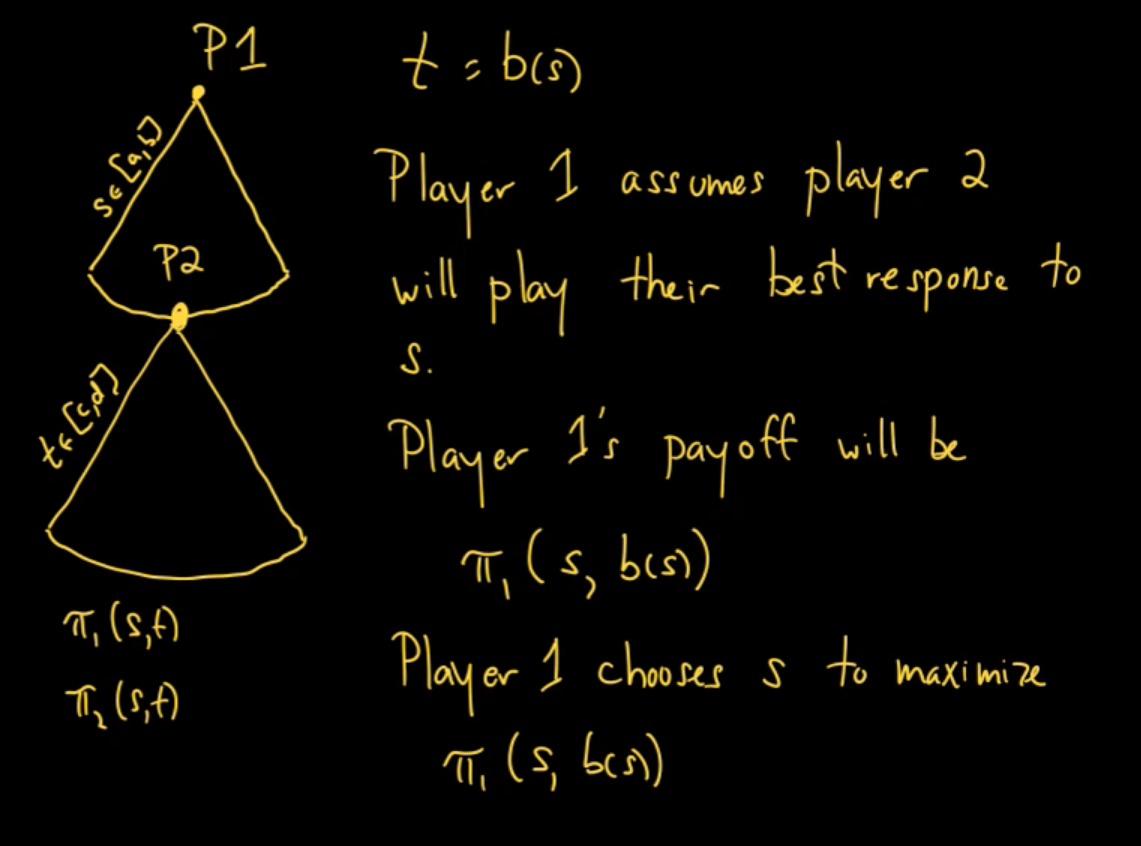 P1
s∈[a,b]
P2
t∈[c,d]
π₁(s,t)
π₂(s,t)
t = b(s)
Player 1 assumes player 2
will play their best response to
s.
Player 1's payoff will be
π₁(s, b(s))
Player 1 chooses s to maximize
π₁(s, b(s))